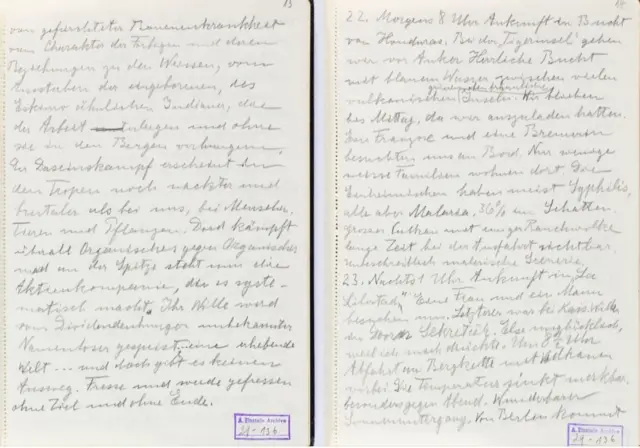 13
von gefürchteter Bananenkrankheit
vom Charakter der Farbigen und deren
Beziehungen zu den Weissen, vom
Aussehen der eingeborenen, des
Eskimo ähnlichen Indianer, die
der Arbeit und ohne
sie in den Bergen
Der Daseinskampf erscheint in
den Tropen noch nackter und
brutaler als bei uns, bei Menschen,
Tieren und Pflanzen. Dort kämpft
überall Organisches gegen Organisches
und an der Spitze steht nur die
Aktienkompanie, die es syste-
matisch macht. Ihr Wille wird
vom Dividendenhunger unbekannter
Namenloser gespeist, eine
Welt ... und doch gibt es keinen
Ausweg. Fresse und werde gefressen
ohne Ziel und ohne Ende.
A. Einstein Archive
29-136
22. Morgens 8 Uhr Ankunft in Bucht
von Honduras. Bei der „Tigerinsel" gehen
wir vor Anker. Herrliche Bucht
mit blauem Wasser, zwischen vielen
vulkanischen Inseln. Wir blieben
bis Mittag, da wir auszuladen hatten.
Ein Franzose und eine
besuchten uns an Bord. Nur wenige
weisse Familien wohnen dort. Die
Einheimischen haben meist Syphilis,
alle aber Malaria. 36% im Schatten.
grosser Vulkan mit einer Rauchwolke
lange Zeit bei der Ausfahrt sichtbar.
Unbeschreiblich malerische Scenerie.
23. Nachts 1 Uhr Ankunft in „La
Libertad". Eine Frau und ein Mann
besuchen uns. Letzterer war bei Kais. Wilh.
der Sekretär. Else unglücklich,
weil ich mich drückte. Um Uhr
Abfahrt an Bergkette mit Vulkanen
vorbei. Die Temperatur sinkt merkbar,
besonders gegen Abend. Wunderbarer
Sonnenuntergang. Von Berlin kommt
A. Einstein Archive
29-136